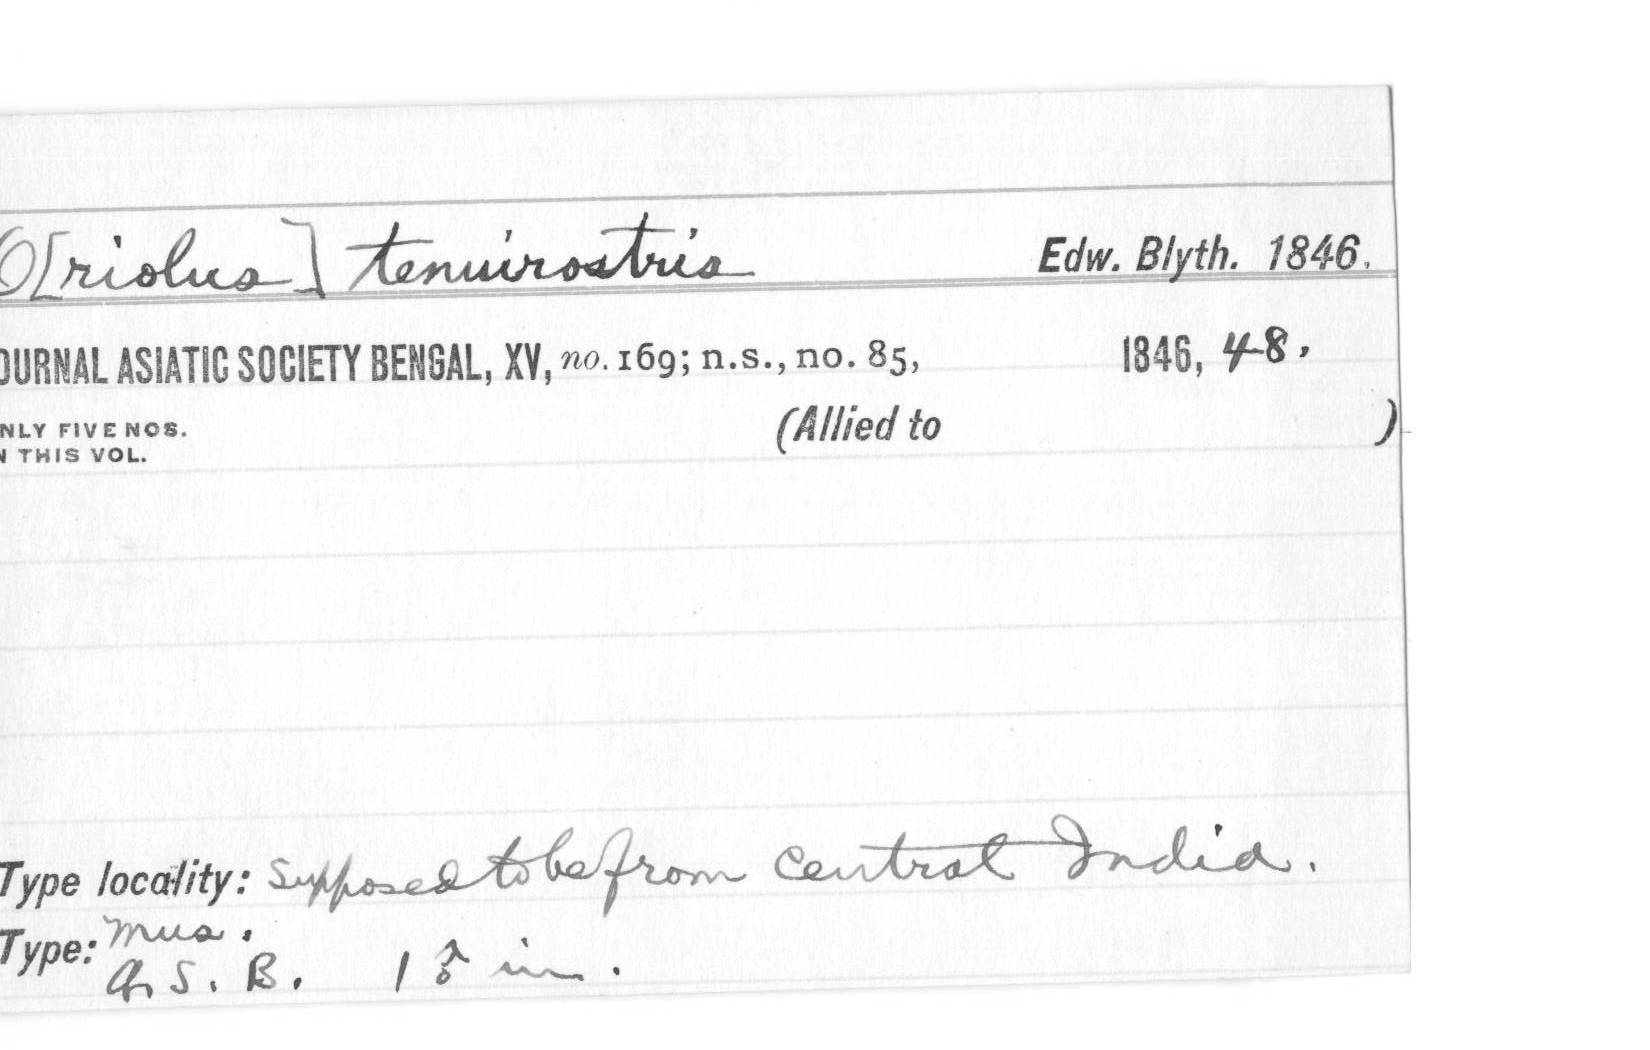 O[riolus] tenuirostris Edw. Blyth. 1846.
OURNAL ASIATIC SOCIETY BENGAL, XV, no. 169; n.s., no. 85, 1846, 48.
(Allied to )
NLY FIVE NOS.
N THIS VOL.
Type locality: Supposed to be from Central India.
Type: Mus.
A. S. B. 1 ♂ im.